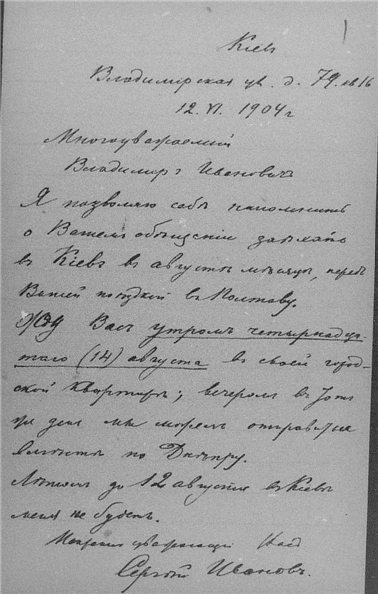 1
Кіевъ
Владимирская ул. д. 79. кв 16
12. VI. 1904 г
Многоуважаемый
Владиміръ Ивановичъ
Я позволяю себѣ напомнить
о Вашемъ обѣщаніи заѣхать
въ Кіевъ въ августѣ мѣсяцѣ, передъ
Вашей поѣздкой въ Полтаву.
Жду Васъ утромъ четырнадца-
таго (14) августа въ своей город-
ской квартирѣ; вечеромъ въ тотъ
же день мы можемъ отправиться
вмѣстѣ по Днѣпру.
Лѣтомъ до 12 августа въ Кіевѣ
меня не будетъ.
Искренно уважающій Васъ
Сергѣй Ивановъ.